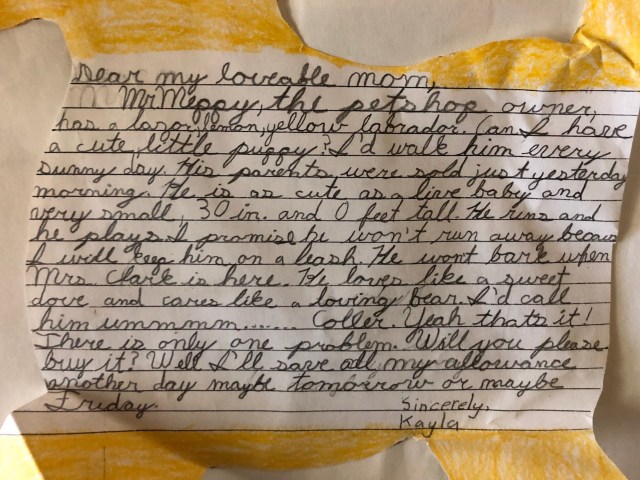 Dear my loveable mom,
Mr Meppy, the petshop owner,
has a lazor, lemon, yellow labrador. Can I have
a cute, little puppy? I'd walk him every
sunny day. His parents were sold just yesterday
morning. He is as cute as a live baby and
very small, 30 in. and 0 feet tall. He runs and
he plays. I promise he won't run away becaus
I will keep him on a leash. He wont bark when
Mrs. Clark is here. He loves like a sweet
dove and cares like a loving bear. I'd call
him ummmm....... Coller. Yeah thats it!
There is only one problem. Will you please
buy it? Well I'll save all my allowance
another day maybe tomorrow or maybe
Friday.
Sincerely,
Kayla